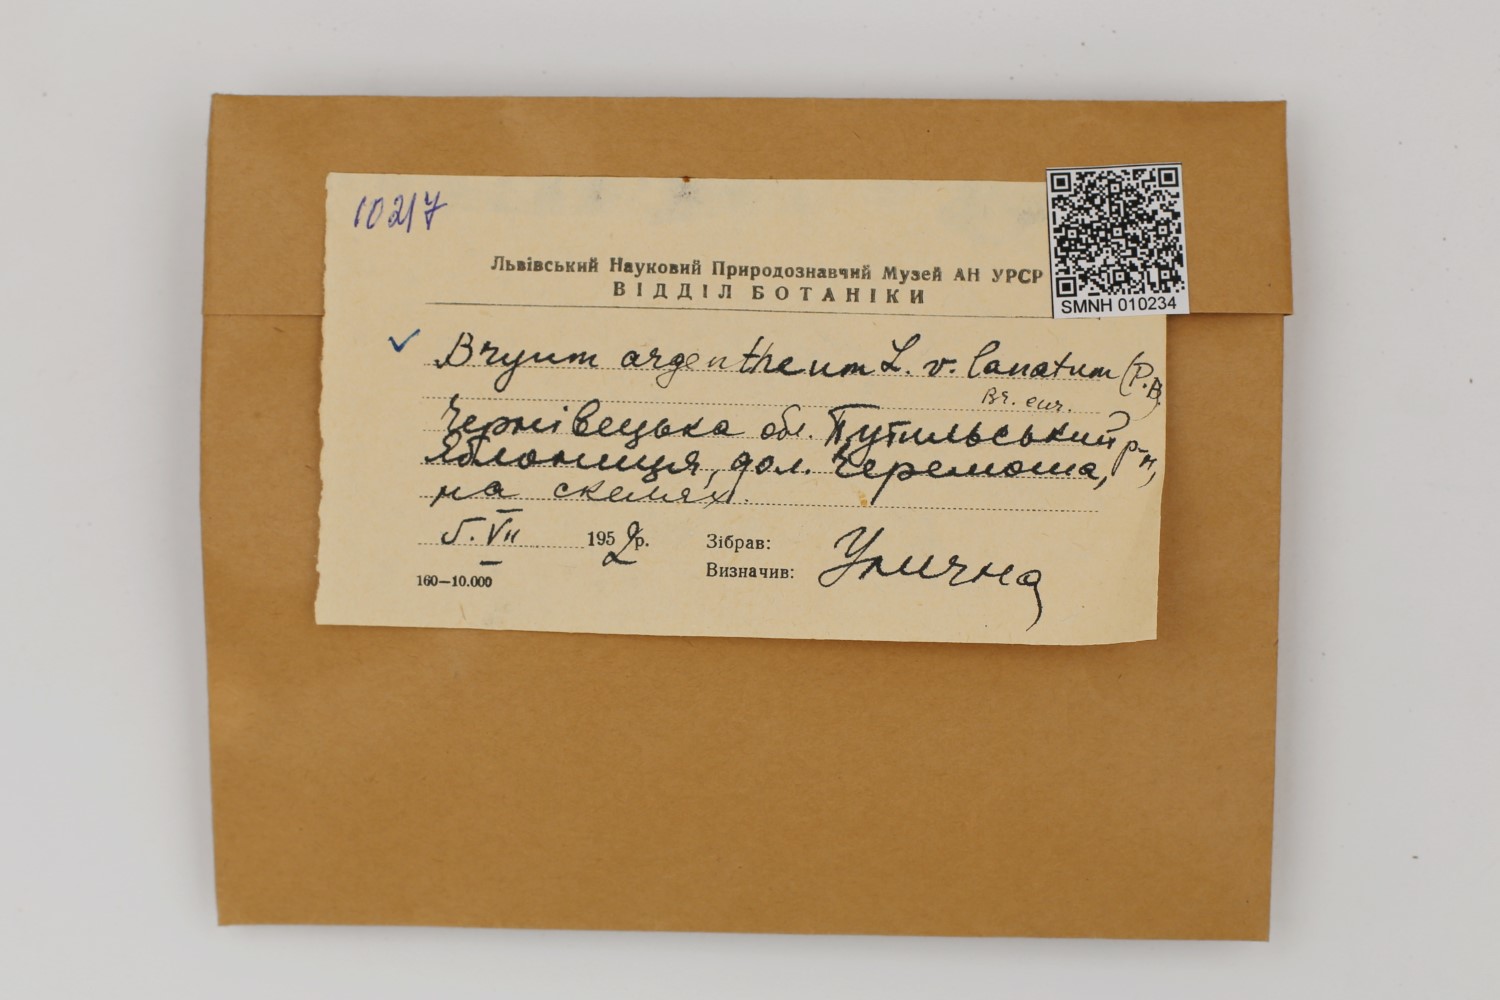 10217
Львівський Науковий Природознавчий Музей АН УРСР
ВІДДІЛ БОТАНІКИ
SMNH 010234
✓ Bryum argentheum L. v. lanatum (P.B)
Br. eur.
Чернівецька обл. Путильський р-н,
Яблониця, дол. Черемоша,
на скелях.
5.VII 1952р.
Зібрав:
Визначив: Улична
160—10.000